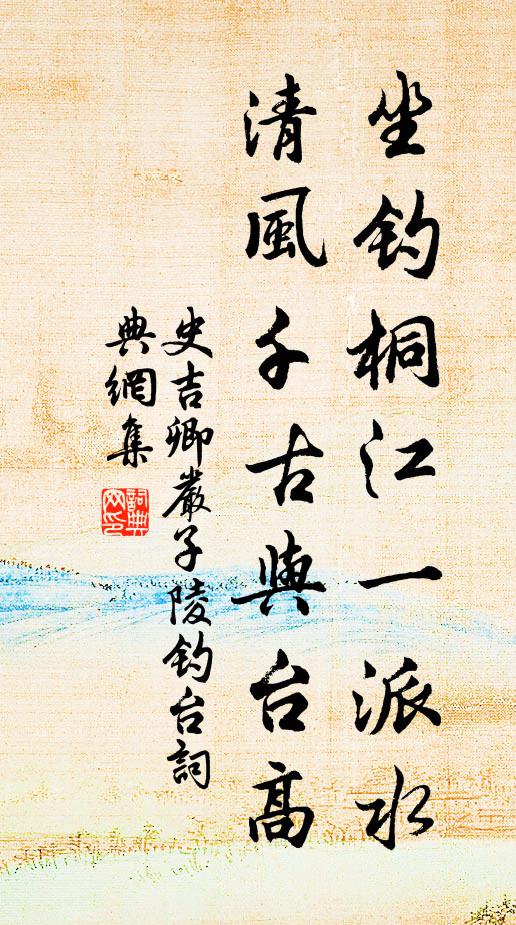 坐钓桐江一派水
清風千古與台高
史吉卿嚴子陵钓台詞
典網集
詞典
网印